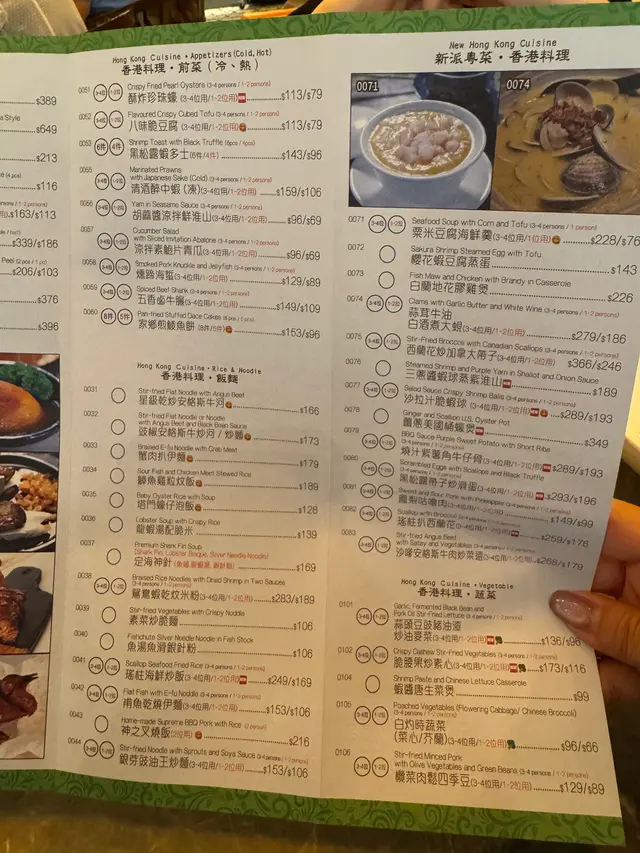 $389
a Style
$649
$213
$116
$163/$113
$339/$186
Peel (2 pcs)
$206/$103
$376
$396
Hong Kong Cuisine • Appetizers (Cold, Hot)
香港料理・前菜（冷、熱）
0051 3-4位 1-2位 Crispy Fried Pearl Oysters (3-4 persons / 1-2 persons)
酥炸珍珠蠔(3-4位用/1-2位用) $113/$79
0052 3-4位 1-2位 Flavoured Crispy Cubed Tofu (3-4 persons / 1-2 persons)
八味脆豆腐(3-4位用/1-2位用) $113/$79
0053 6件 4件 Shrimp Toast with Black Truffle (6pcs / 4pcs)
黑松露蝦多士(6件/4件) $143/$96
0055 3-4位 1-2位 Marinated Prawns
with Japanese Sake (Cold) (3-4 persons / 1-2 persons)
清酒醉中蝦 (凍)(3-4位用/1-2位用) $159/$106
0056 3-4位 1-2位 Yam in Seasame Sauce (3-4 persons / 1-2 persons)
胡麻醬涼拌鮮淮山(3-4位用/1-2位用) $96/$69
0057 3-4位 1-2位 Cucumber Salad
with Sliced Imitation Abalone (3-4 persons / 1-2 persons)
涼拌素鮑片青瓜(3-4位用/1-2位用) $96/$69
0058 3-4位 1-2位 Smoked Pork Knuckle and Jellyfish (3-4 persons / 1-2 persons)
燻蹄海蜇(3-4位用/1-2位用) $129/$89
0059 3-4位 1-2位 Spiced Beef Shank (3-4 persons / 1-2 persons)
五香鹵牛𦟌(3-4位用/1-2位用) $149/$109
0060 8件 5件 Pan-fried Stuffed Dace Cakes (8 pcs / 5 pcs)
家鄉煎鯪魚餅 (8件/5件) $153/$96
Hong Kong Cuisine • Rice & Noodle
香港料理・飯麵
0031 Stir-fried Flat Noodle with Angus Beef
星級乾炒安格斯牛河 $166
0032 Stir-fried Flat Noodle or Noodle
with Angus Beef and Black Bean Sauce
豉椒安格斯牛炒河 / 炒麵 $173
0033 Braised E-fu Noodle with Crab Meat
蟹肉扒伊麵 $179
0034 Sour Fish and Chicken Meat Stewed Rice
$189
0035 Baby Oyster Rice with Soup
塔門蠔仔泡飯 $128
0036 Lobster Soup with Crispy Rice
龍蝦湯配脆米 $139
0037 Premium Shark Fin Soup
(Shark Fin, Lobster Bisque, Silver Needle Noodle)
定海神針 $169
0038 3-4位 1-2位 Braised Rice Noodles with Dried Shrimp in Two Sauces
(3-4 persons / 1-2 persons)
鴛鴦蝦乾炆米粉(3-4位用/1-2位用) $283/$189
0039 Stir-fried Vegetables with Crispy Noodle
素菜炒脆麵 $106
0040 Fishchute Silver Needle Noodle in Fish Stock
魚湯魚滑銀針粉 $106
0041 3-4位 1-2位 Scallop Seafood Fried Rice (3-4 persons / 1-2 persons)
瑤柱海鮮炒飯(3-4位用/1-2位用) $249/$169
0042 3-4位 1-2位 Flat Fish with E-fu Noodle (3-4 persons / 1-2 persons)
甫魚乾燒伊麵(3-4位用/1-2位用) $153/$106
0043 Home-made Supreme BBQ Pork with Rice (2 person)
神之叉燒飯(2位用) $216
0044 3-4位 1-2位 Stir-fried Noodle with Sprouts and Soya Sauce (3-4 persons / 1-2 persons)
銀芽豉油王炒麵(3-4位用/1-2位用) $153/$106
New Hong Kong Cuisine
新派粵菜・香港料理
0071
0074
0071 3-4位 1位 Seafood Soup with Corn and Tofu (3-4 persons / 1 person)
粟米豆腐海鮮羹(3-4位用/1位用) $228/$76
0072 Sakura Shrimp Steamed Egg with Tofu
櫻花蝦豆腐蒸蛋 $143
0073 Fish Maw and Chicken with Brandy in Casserole
白蘭地花膠雞煲 $226
0074 3-4位 1-2位 Clams with Garlic Butter and White Wine (3-4 persons / 1-2 persons)
蒜茸牛油
白酒煮大蜆(3-4位用/1-2位用) $279/$186
0075 3-4位 1-2位 Stir-Fried Brocco with Canadian Scallops (3-4 persons / 1-2 persons)
西蘭花炒加拿大帶子(3-4位用/1-2位用) $366/$246
0076 Steamed Shrimp and Purple Yam in Shallot and Onion Sauce
三蔥醬蝦球蒸紫淮山 $189
0077 3-4位 1-2位 Salad Sauce Crispy Shrimp Balls (3-4 persons / 1-2 persons)
沙拉汁脆蝦球(3-4位用/1-2位用) $289/$193
0078 Ginger and Scallion U.S. Oyster Pot
薑蔥美國桶蠔煲 $349
0079 3-4位 1-2位 BBQ Sauce Purple Sweet Potato with Short Ribe
(3-4 persons / 1-2 persons)
燒汁紫薯角牛仔骨(3-4位用/1-2位用) $289/$193
0080 3-4位 1-2位 Scrambled Eggs with Scallops and Black Truffle
(3-4 persons / 1-2 persons)
黑松露帶子炒滑蛋(3-4位用/1-2位用) $293/$196
0081 3-4位 1-2位 Sweet and Sour Pork with Pineapples (3-4 persons / 1-2 persons)
鳳梨咕嚕肉(3-4位用/1-2位用) $149/$99
0082 3-4位 1-2位 Scallop with Broccoli (3-4 persons / 1-2 persons)
瑤柱扒西蘭花(3-4位用/1-2位用) $259/$176
0083 3-4位 1-2位 Stir-fried Angus Beef
with Satay and Vegetables (3-4 persons / 1-2 persons)
沙嗲安格斯牛肉炒菜遠(3-4位用/1-2位用) $268/$179
Hong Kong Cuisine • Vegetable
香港料理・蔬菜
0101 3-4位 1-2位 Garlic, Fermented Black Bean and
Pork Oil Stir-Fried Lettuce (3-4 persons / 1-2 persons)
蒜頭豆豉豬油渣
炒油麥菜(3-4位用/1-2位用) $136/$96
0102 3-4位 1-2位 Crispy Cashew Stir-Fried Vegetables (3-4 persons / 1-2 persons)
脆腰果炒素心(3-4位用/1-2位用) $173/$116
0104 Shrimp Paste and Chinese Lettuce Casserole
蝦醬唐生菜煲 $99
0105 3-4位 1-2位 Poached Vegetables (Flowering Cabbage/ Chinese Broccoli)
(3-4 persons / 1-2 persons)
白灼時蔬菜
(菜心/芥蘭)(3-4位用/1-2位用) $96/$66
0106 3-4位 1-2位 Stir-fried Minced Pork
with Olive Vegetables and Green Beans (3-4 persons / 1-2 persons)
欖菜肉鬆四季豆(3-4位用/1-2位用) $129/$89